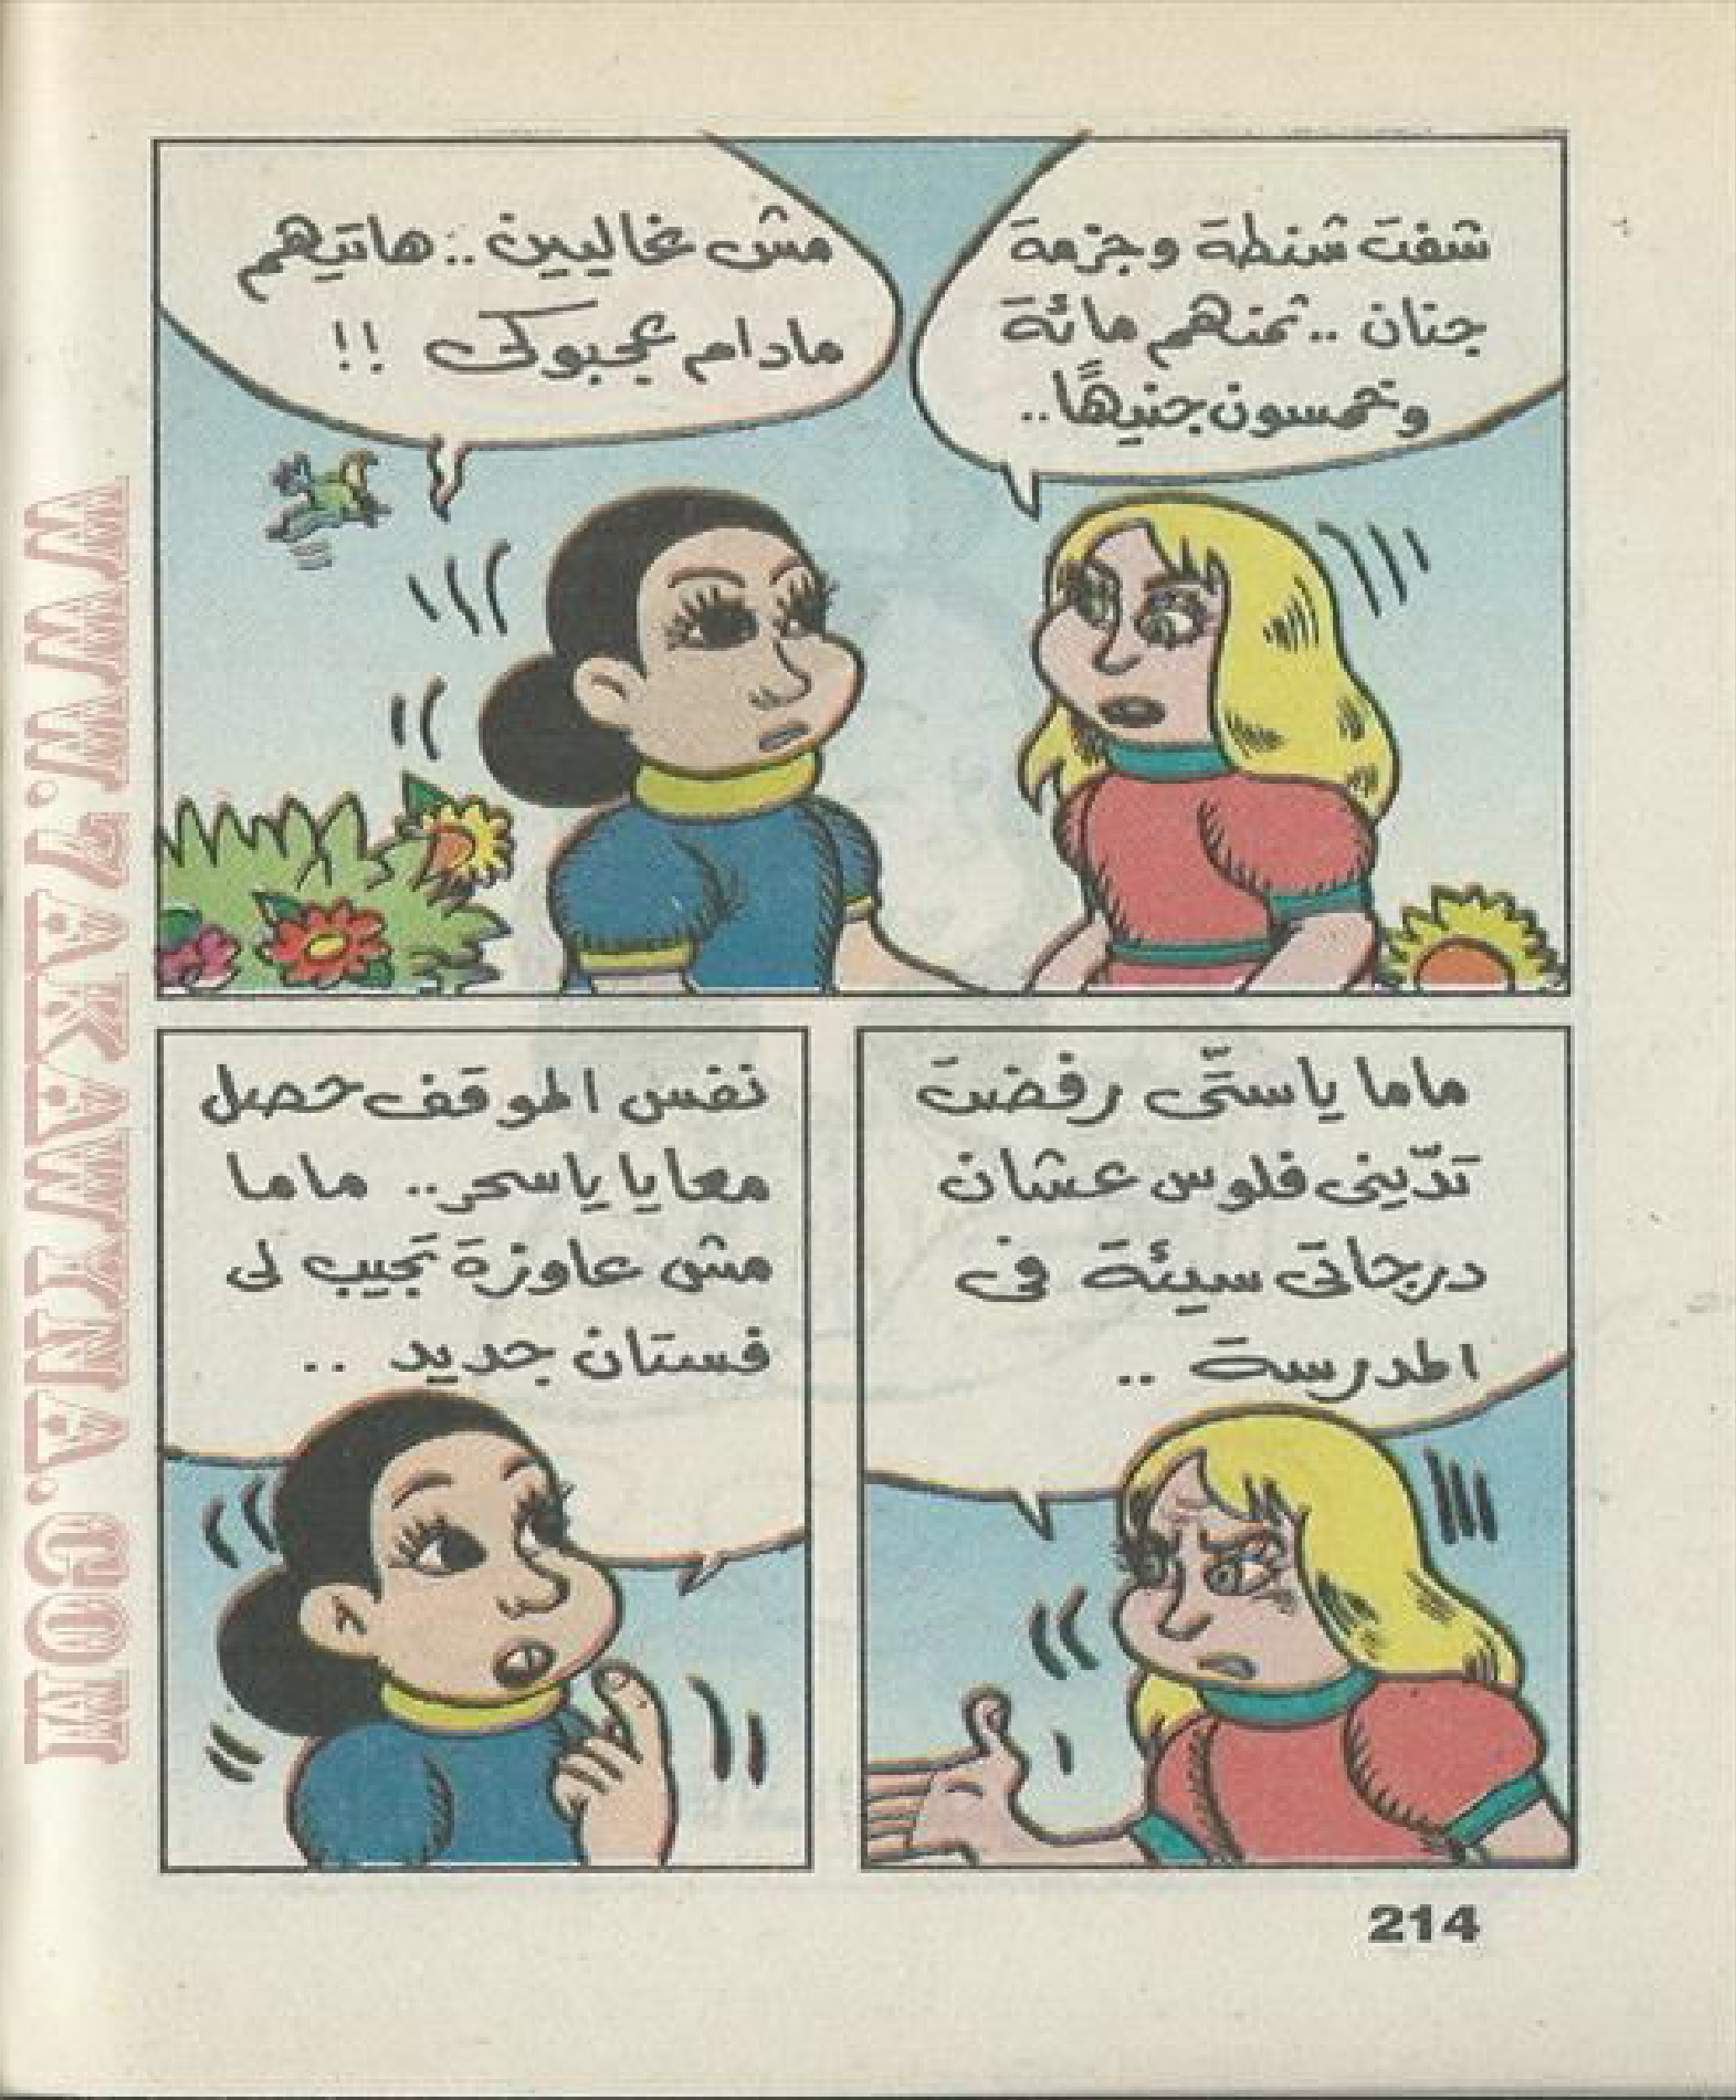 شفت شنطة وجزمة
جنان .. ثمنهم مائة
وخمسون جنيهًا ..
مش غاليين .. هاتيهم
مادام عجبوكى !!
ماما ياستّى رفضت
تدّينى فلوس عشان
درجاتى سيئة فى
المدرسة ..
نفس الموقف حصل
معايا ياسحر .. ماما
مش عاوزة تجيب لى
فستان جديد ..
214
WWW.7AKAWINA.COM